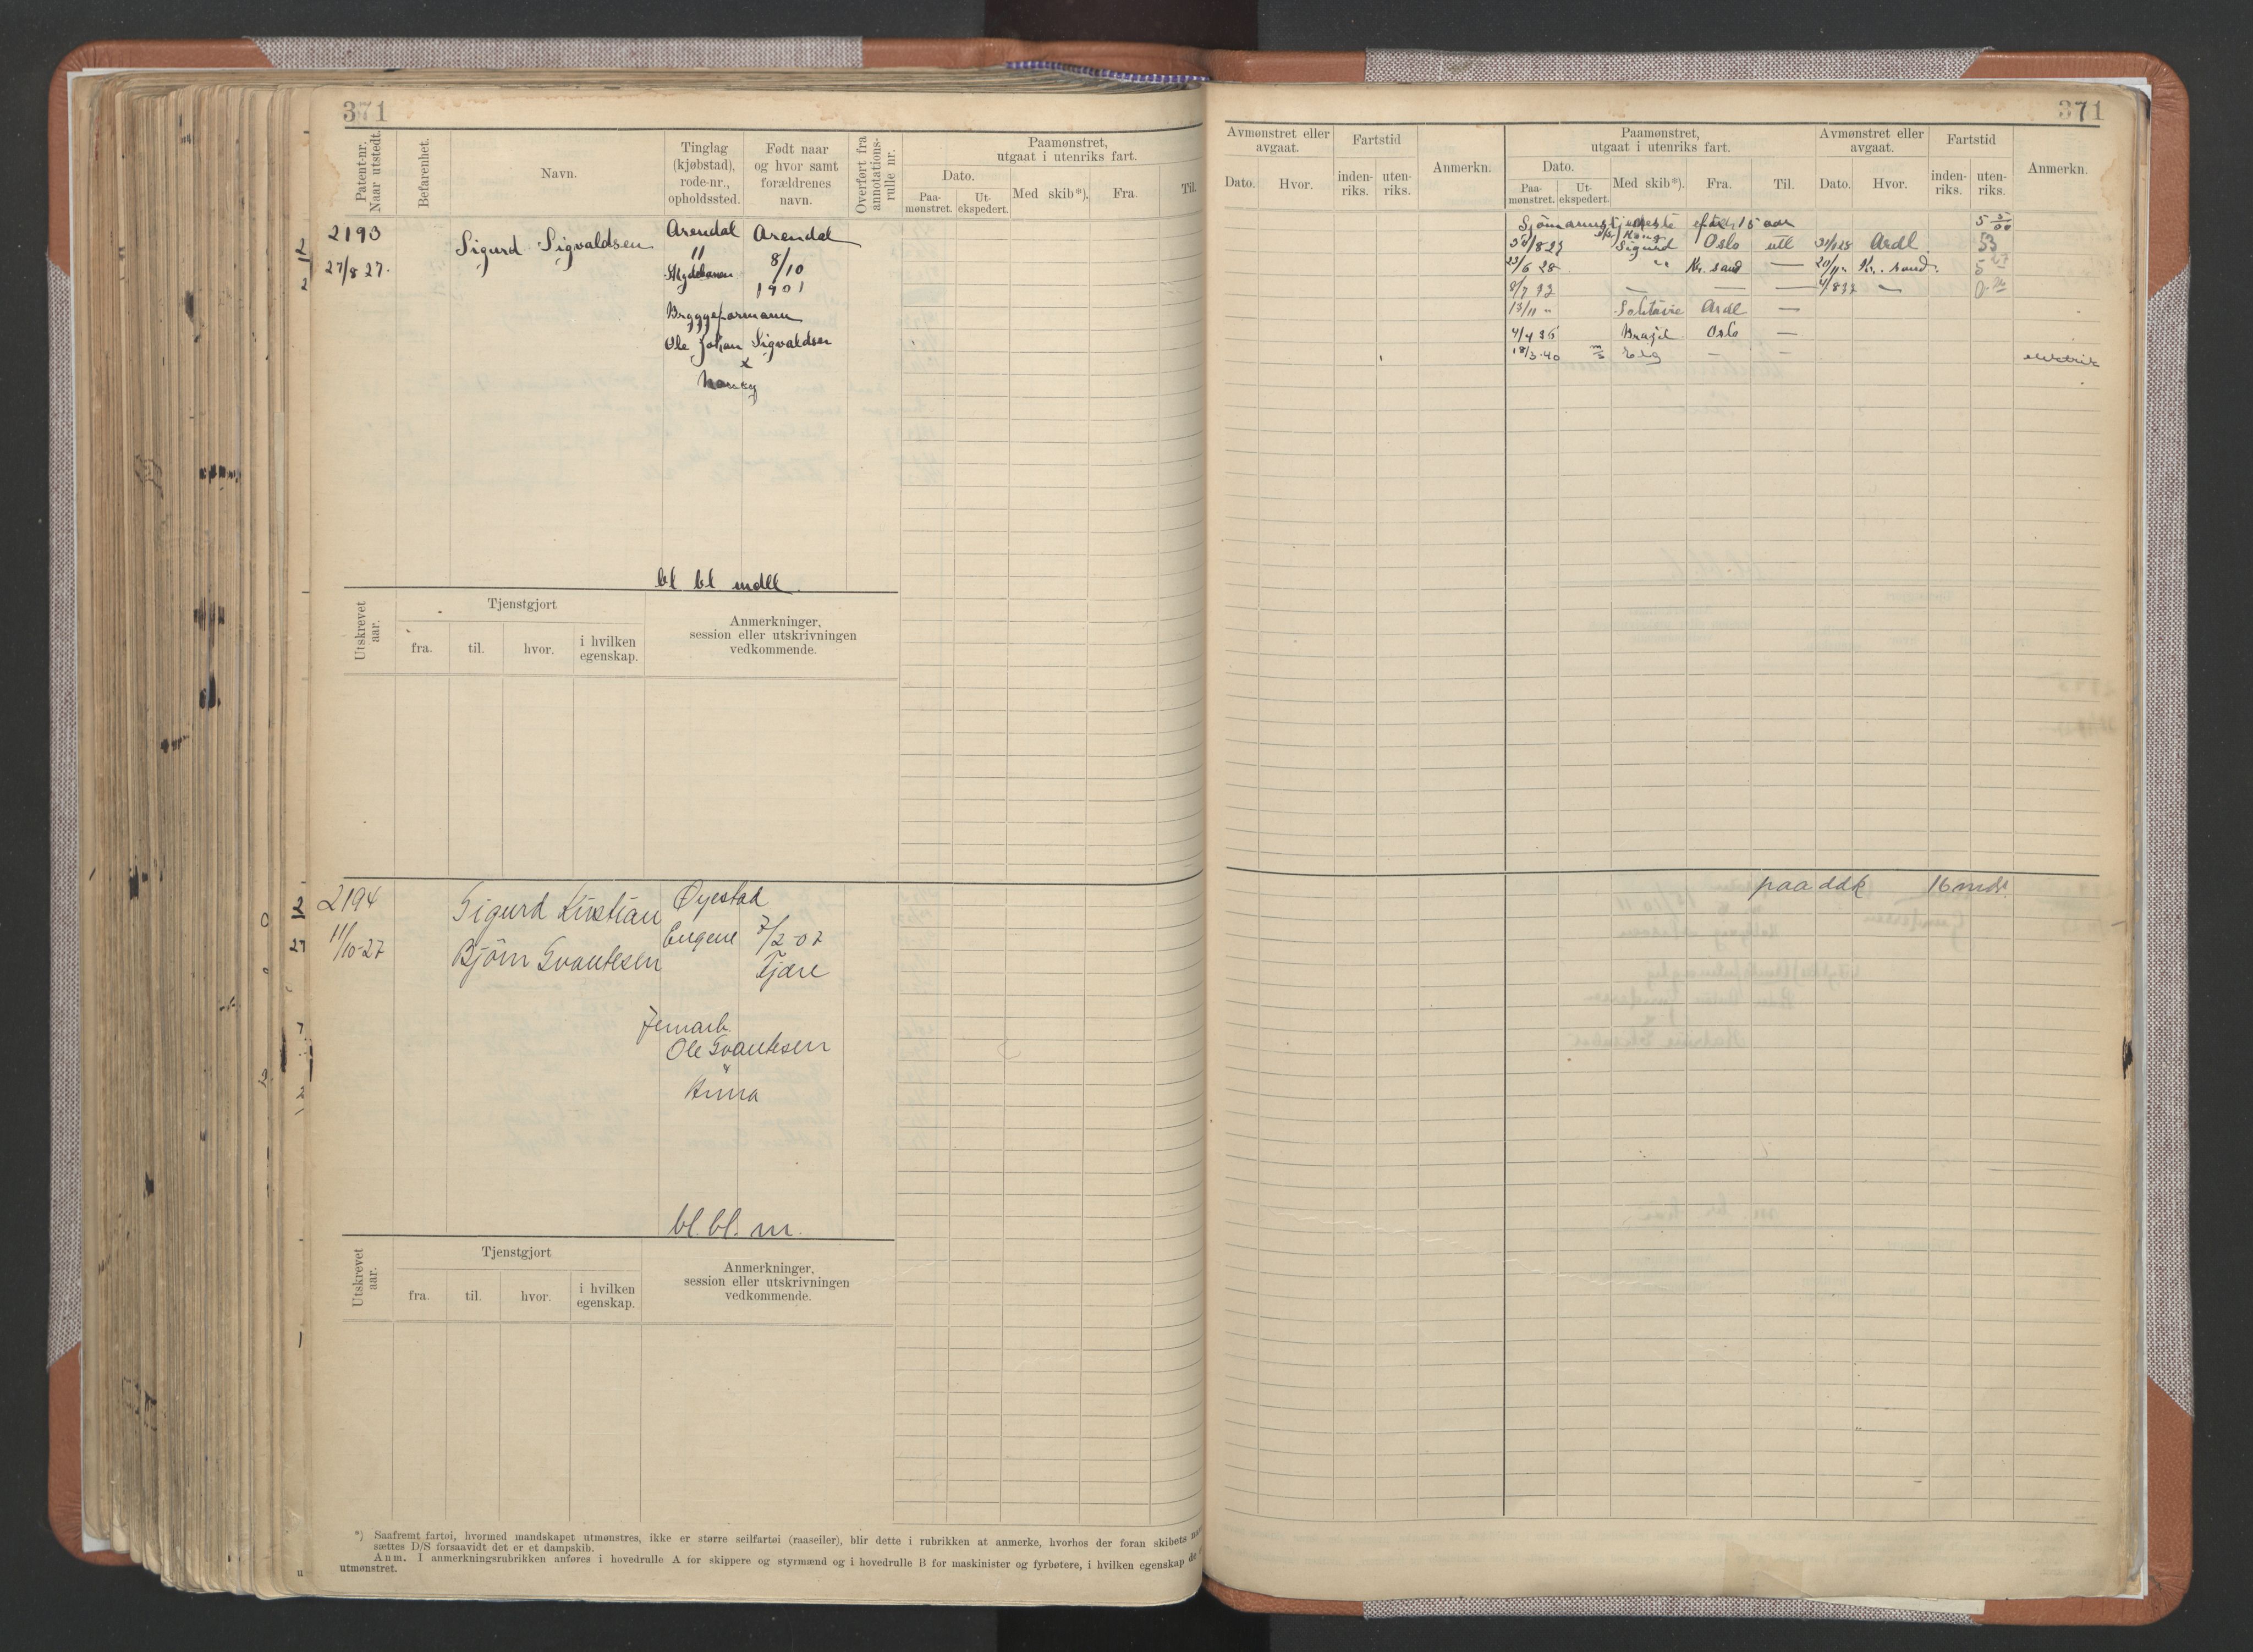 371
Patent-nr. Naar utstedt.
Befarenhet.
Navn.
Tinglag (kjøbstad), rode-nr., opholdssted.
Født naar og hvor samt forældrenes navn.
Overført fra annotations-rulle nr.
Paamønstret, utgaat i utenriks fart.
Dato.
Paa-mønstret.
Ut-ekspedert.
Med skib*).
Fra.
Til.
2193
27/8 27.
Sigurd Sigvaldsen
Arendal
"
Arendal
8/10
1901
Bryggeformann
Ole Johan Sigvaldsen
x
bl bl mdll
Utskrevet aar.
Tjenstgjort
fra.
til.
hvor.
i hvilken egenskap.
Anmerkninger, session eller utskrivningen vedkommende.
2194
11/10-27
Sigurd Kristian
Bjørn Svantesen
Øyestad
Engene
7/2-07
Fjære
Jernarb.
Ole Svantesen
Anna
bl. bl. m.
Utskrevet aar.
Tjenstgjort
fra.
til.
hvor.
i hvilken egenskap.
Anmerkninger, session eller utskrivningen vedkommende.
*) Saafremt fartøi, hvormed mandskapet utmønstres, ikke er større seilfartøi (raaseiler), blir dette i rubrikken at anmerke, hvorhos der foran skibets
sættes D/S forsaavidt det er et dampskib.
Anm. I anmerkningsrubrikken anføres i hovedrulle A for skippere og styrmænd og i hovedrulle B for maskinister og fyrbøtere, i hvilken egenskap de
utmønstret.
371
Avmønstret eller avgaat.
Dato.
Hvor.
Fartstid
inden-riks.
uten-riks.
Anmerkn.
Paamønstret, utgaat i utenriks fart.
Dato.
Paa-mønstret.
Ut-ekspedert.
Med skib*).
Fra.
Til.
Avmønstret eller avgaat.
Dato.
Hvor.
Fartstid
inden-riks.
uten-riks.
Anmerkn.
Sjømannstjeneste efter 15 aar
30/8 27 Kong Sigurd Oslo utl Ardl
23/6 28 " Kr. sand — 20/11 " Kr. sand.
— — —
13/11 " Solitaire Ardl —
4/4 36 Brasil Oslo —
18/3-40 m/s Elg — — elektrik
paa ddk 16 mdr